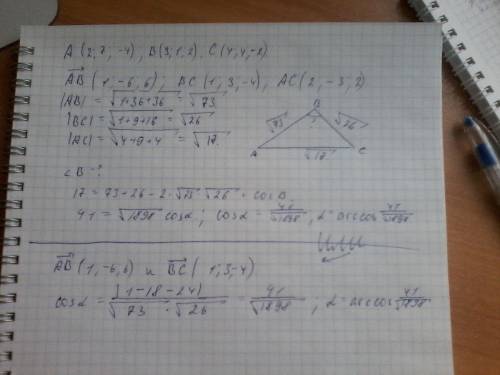 A (2; 7, -4), B(3, 1, 2), C(4; 4, -2)
AB (1, -6, 6), BC (1, 3, -4), AC (2, -3, 2)
|AB| = √1+36+36 = √73
|BC| = √1+9+16 = √26
|AC| = √4+9+4 = √17
B
√73
√26
A
√17
C
∠B - ?
17 = 73+26 - 2·√73 √26 · cos B
41 = √1898 cosα; cosα = 41/√1898; α = arccos 41/√1898
AB (1, -6, 6) и BC (1; 3, -4)
cosα = |1-18-24| / √73 · √26 = 41/√1898; α = arccos 41/√1898